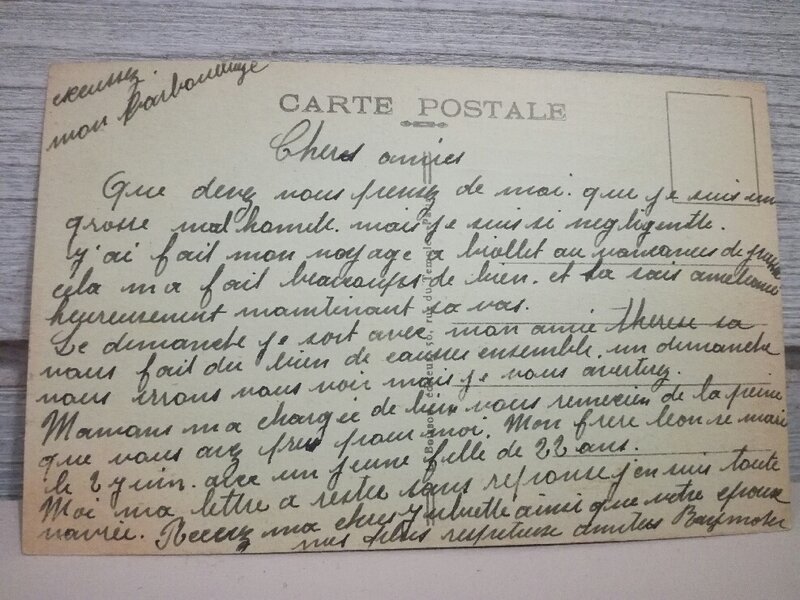 excussez
mon barbouillage
CARTE POSTALE
Chers amies
Que devez vous pensez de moi. que je suis un
grosse malhonete. mais je suis si negligente.
j'ai fait mon voyage a biollet au vancances de
cela m'a fait beaucoups de bien. et sa
heureusement maintenant sa vas.
Le dimanche je sort avec mon amie therese sa
nous fait du bien de causer ensemble. un dimanche
nous irrons vous voir mais je vous avertirez.
Mamans m'a chargée de bien vous remercier de la peine
que vous avez pris pour moi. Mon frere leon se marie
le 2 juin. avec un jeune fille de 22 ans.
Moi ma lettre a restre sans reponse j'en suis toute
navrée. Recevez ma chere ainsi que votre epoux
mes plus respectueuse amities Raymonde
rue du Temple